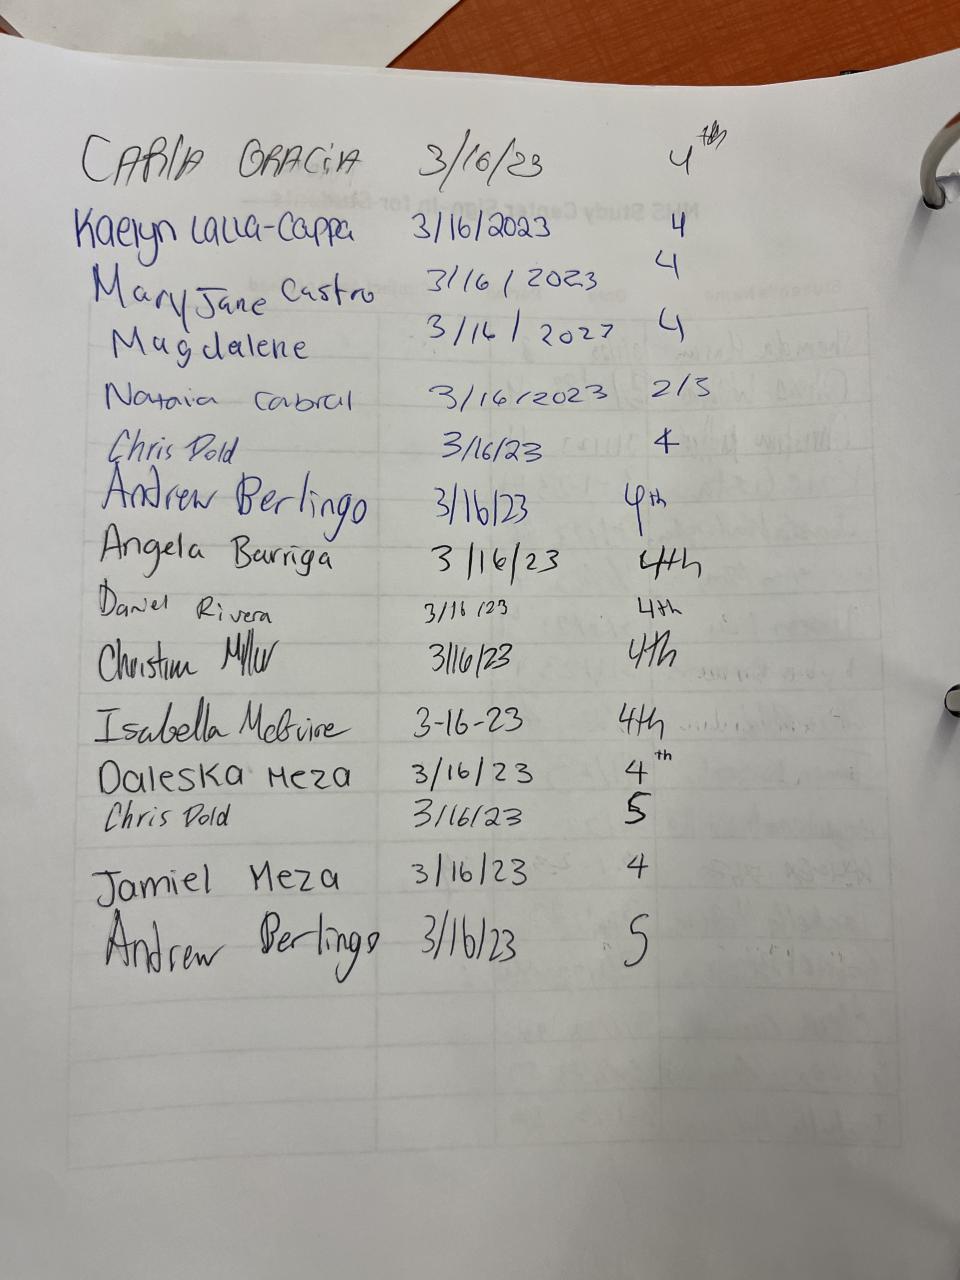 CARlA GRACiA 3/16/23 4th
Kaelyn LaLLa-Cappa 3/16/2023 4
Mary Jane Castro 3/16/2023 4
Magdalene 3/16/2023 4
Nataia Cabral 3/16/2023 2/3
Chris Dold 3/16/23 4
Andrew Berlingo 3/16/23 4th
Angela Barriga 3/16/23 4th
Daniel Rivera 3/16/23 4th
Christina Miller 3/16/23 4th
Isabella McGuire 3-16-23 4th
Daleska Meza 3/16/23 4th
Chris Dold 3/16/23 5
Jamiel Meza 3/16/23 4
Andrew Berlingo 3/16/23 5